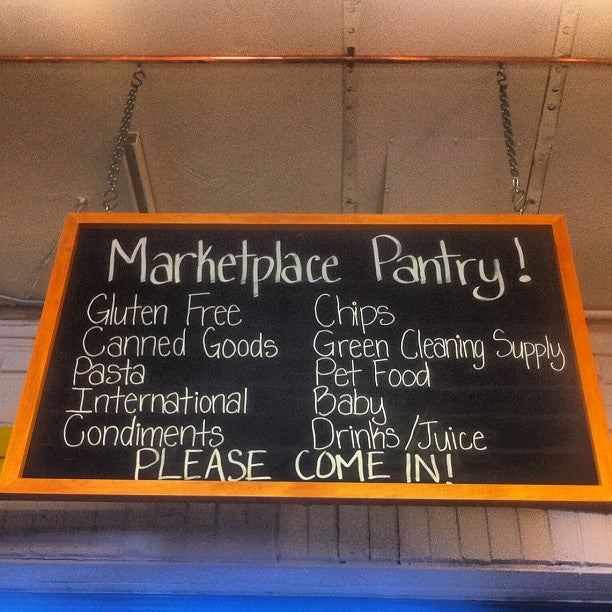 Marketplace Pantry!
Gluten Free
Canned Goods
Pasta
International
Condiments
Chips
Green Cleaning Supply
Pet Food
Baby
Drinks/Juice
PLEASE COME IN!